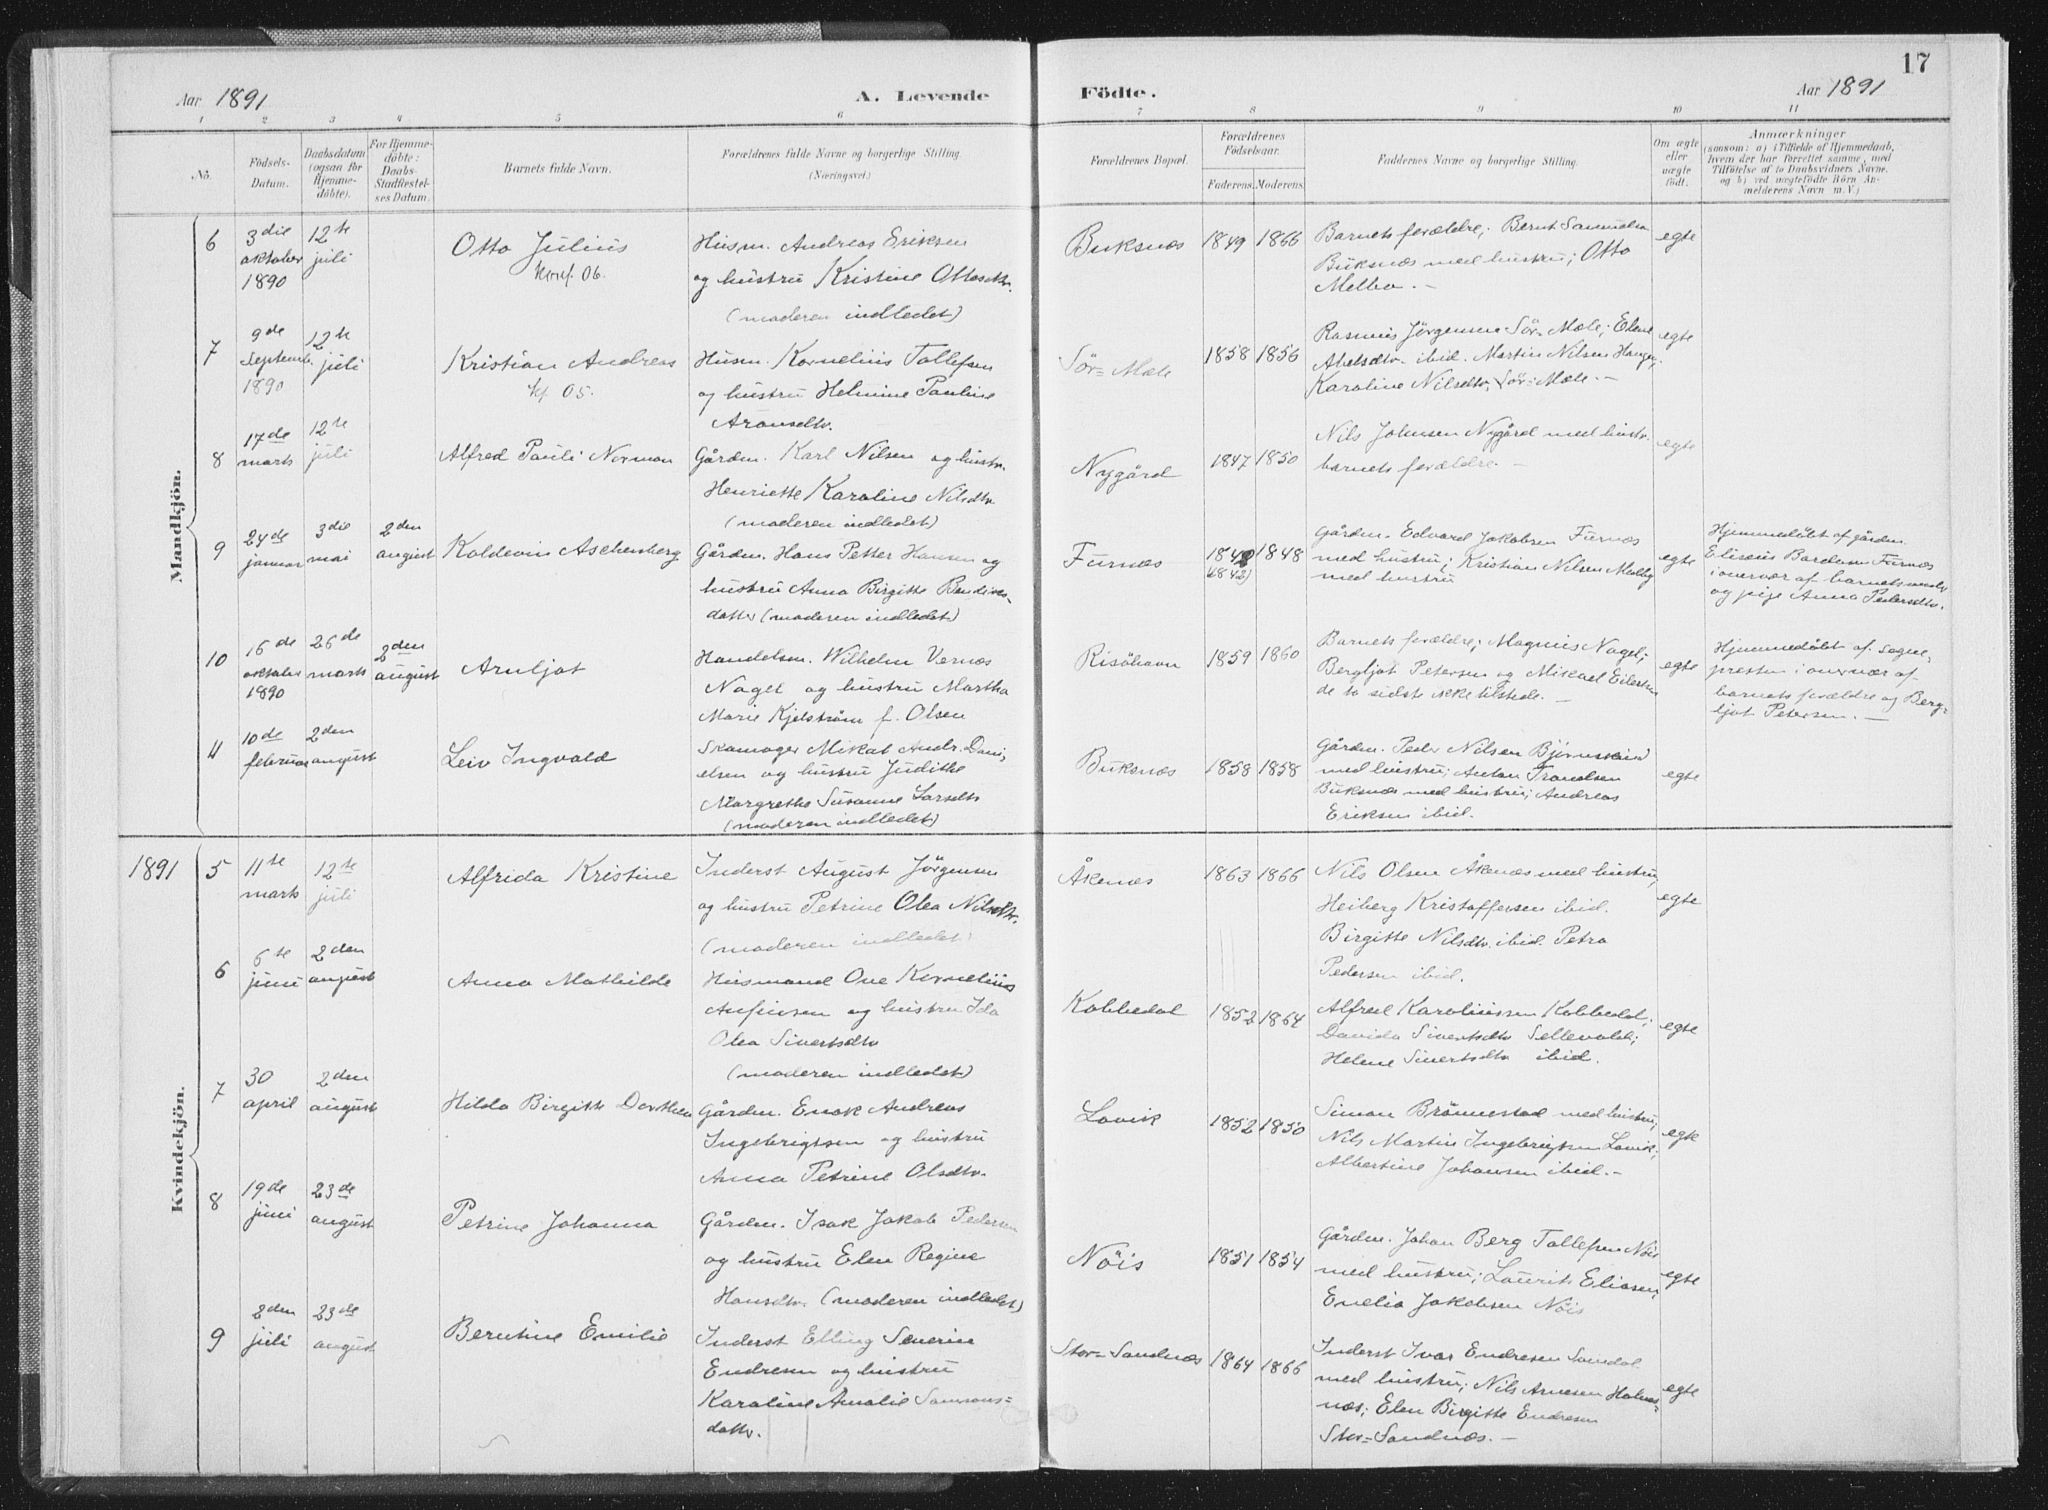 17
Aar 1891
A. Levende
Födte.
Aar 1891
1 2 3 4 5 6 7 8 9 10 11
No.
Födsels-
Datum.
Daabsdatum
(ogsaa for
Hjemme-
döbte).
For Hjemme-
döbte:
Daabs-
Stadfæstel-
ses Datum.
Barnets fulde Navn.
Forældrenes fulde Navne og borgerlige Stilling.
(Næringsvei.)
Forældrenes Bopæl.
Forældrenes
Födselsaar.
Faderens. Moderens.
Faddernes Navne og borgerlige Stilling.
Om ægte
eller
uægte
födt.
Anmærkninger
(saasom: a) i Tilfælde af Hjemmedaab,
hvem der har forrettet samme, med
Tilföielse af to Daabsvidners Navne.
og b) ved uægtefödte Börn An-
melderens Navn m. V.)
Mandkjön.
6
3die
oktober
1890
12te
juli
Otto Julius
konf. 06.
Husm. Andreas Eriksen
og hustru Kristine Ottosdtr.
(moderen indledet)
Buksnæs
1849 1866
Barnets forældre; Bernt Samuelsen
Buksnæs med hustru; Otto
Melbo. —
egte
7
9de
Septemb.
1890
12te
juli
Kristian Andreas
kf. 05.
Husm. Kornelius Tollefsen
og hustru Helmine Pauline
Aronsdtr.
Sör=Mæle
1858 1856
Rasmus Jörgensen Sör=Mæle; Elene
Abelsdtr. ibid. Martin Nilsen
Karoline Nilsdtr, Sör=Mæle. —
egte
8
17de
marts
12te
juli
Alfred Pauli Norman
Gården. Karl Nilsen og hustr.
Henriette Karoline Nilsdtr.
(moderen indledet)
Nygård
1847 1850
Nils Johnsen Nygård med hustr.
barnets forældre. —
egte
9
24de
januar
3die
mai
2den
august
Koldevin Aschenberg
Gården. Hans Petter Hansen og
hustru Anna Birgitte Bendiks-
datter (moderen indledet)
Furnæs
1848
(1842)
Gården. Edvard Jakobsen Furnæs
med hustru; Kristian Nilsen Melby
med hustru
egte
Hjemmedöbt af gården.
Eliseus Bardosen Furnæs
i overvær af barnets moder
og pige Anna Pedersdtr.
10
16de
oktober
1890
26de
marts
2den
august
Arnljot
Handelsm. Wilhelm Vernæs
Nagel og hustru Martha
Marie Kjelström f. Olsen
Risöhavn
1859 1860
Barnets forældre; Magnus Nagel;
Bergljot Petersen og Mikael Eilertsen
de to sidste ikke tilstede. —
egte
Hjemmedöbt af Sogne-
presten i overvær af
barnets forældre og Berg-
ljot Petersen. —
11
10de
februar
2den
august
Leiv Ingvald
Skomager Mikal Andr. Dani-
elsen og hustru Judithe
Margrethe Susanne Larsdtr
(moderen indledet)
Buksnæs
1858 1858
Gården. Peder Nilsen Björnskind
med hustru; Anton Trondsen
Buksnæs med hustru; Andreas
Eriksen ibid.
egte
1891
Kvindekjön.
5
11te
marts
12te
juli
Alfrida Kristine
Inderst August Jörgensen
og hustru Petrine Olea Nilsdtr.
(moderen indledet)
Åkenæs
1863 1866
Nils Olsen Åkenæs med hustru,
Heiberg Kristoffersen ibid.
Birgitte Nilsdtr. ibid. Petra
Pedersen ibid.
egte
6
6te
juni
2den
august
Anna Mathilde
Husmand Ove Kornelius
Anfinsen og hustru Ida
Olea Sivertsdtr
(moderen indledet)
Kobbedal
1852 1864
Alfred Karoliussen Kobbedal;
Davida Sivertsdtr Sellevold;
Helene Sivertsdtr ibid.
egte
7
30
april
2den
august
Hilda Birgitte Dorthea
Gården. Enok Andreas
Ingebrigtsen og hustru
Anna Petrine Olsdtr.
Lovik
1852 1850
Simon Brönnestad med hustru;
Nils Martin Ingebrigtsen Lovik,
Albertine Johansen ibid. —
egte
8
19de
juni
23de
august
Petrine Johanna
Gården. Isak Jakob Pedersen
og hustru Elen Regine
Hansdtr. (moderen indledet)
Nöis
1851 1854
Gården. Johan Berg Tollefsen Nöis
med hustru; Laurits Eliasen,
Enelia Jakobsen Nöis
egte
9
2den
juli
23de
august
Berntine Emilie
Inderst Elling Severin
Endresen og hustru
Karoline Amalie Samsons=
datter.
Stor=Sandnæs
1864 1866
Inderst Ivar Endresen Somdal
med hustru; Nils Arnesen Holm-
næs; Elen Birgitte Endresen
Stor=Sandnæs. —
egte